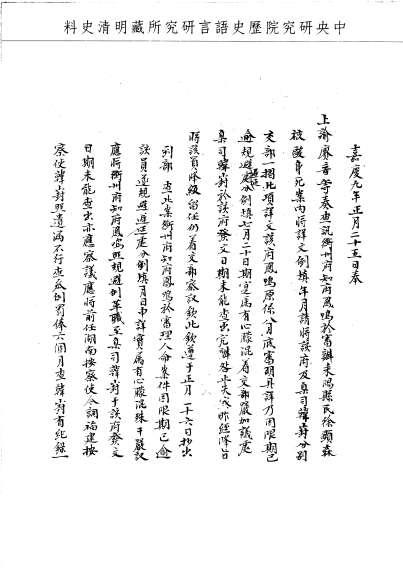 中央研究院歷史語言研究所藏明清史料
嘉慶九年正月二十五日奉
上諭廖音等奏查訊衡州府知府鳳鳴於審辦耒陽縣民徐顯森
被毆身死案內將詳文例填年月請將該府及臬司韓崶分別
交部一摺此項詳文該府鳳鳴原係八月底審明具詳乃因限期已
逾規避遲延例填七月二十日寔屬有心朦混着交部嚴加議處
臬司韓崶於該府發文日期未能查出究辦咎亦失察昨經降旨
將該員降級留任仍着交部察議欽此欽遵于正月二十六日抄出
到部 查此案衡州府知府鳳鳴於審理人命案件因限期已逾
該員遂規避遲延分例填月日申詳實屬有心朦混殊干嚴議
應將衡州府知府鳳鳴照規避例革職至臬司韓崶于該府發文
日期未能查出亦應察議應將前任湖南按察使今調福建按
察使韓崶照遺漏不行查出例罰俸六個月查韓崶有紀錄一